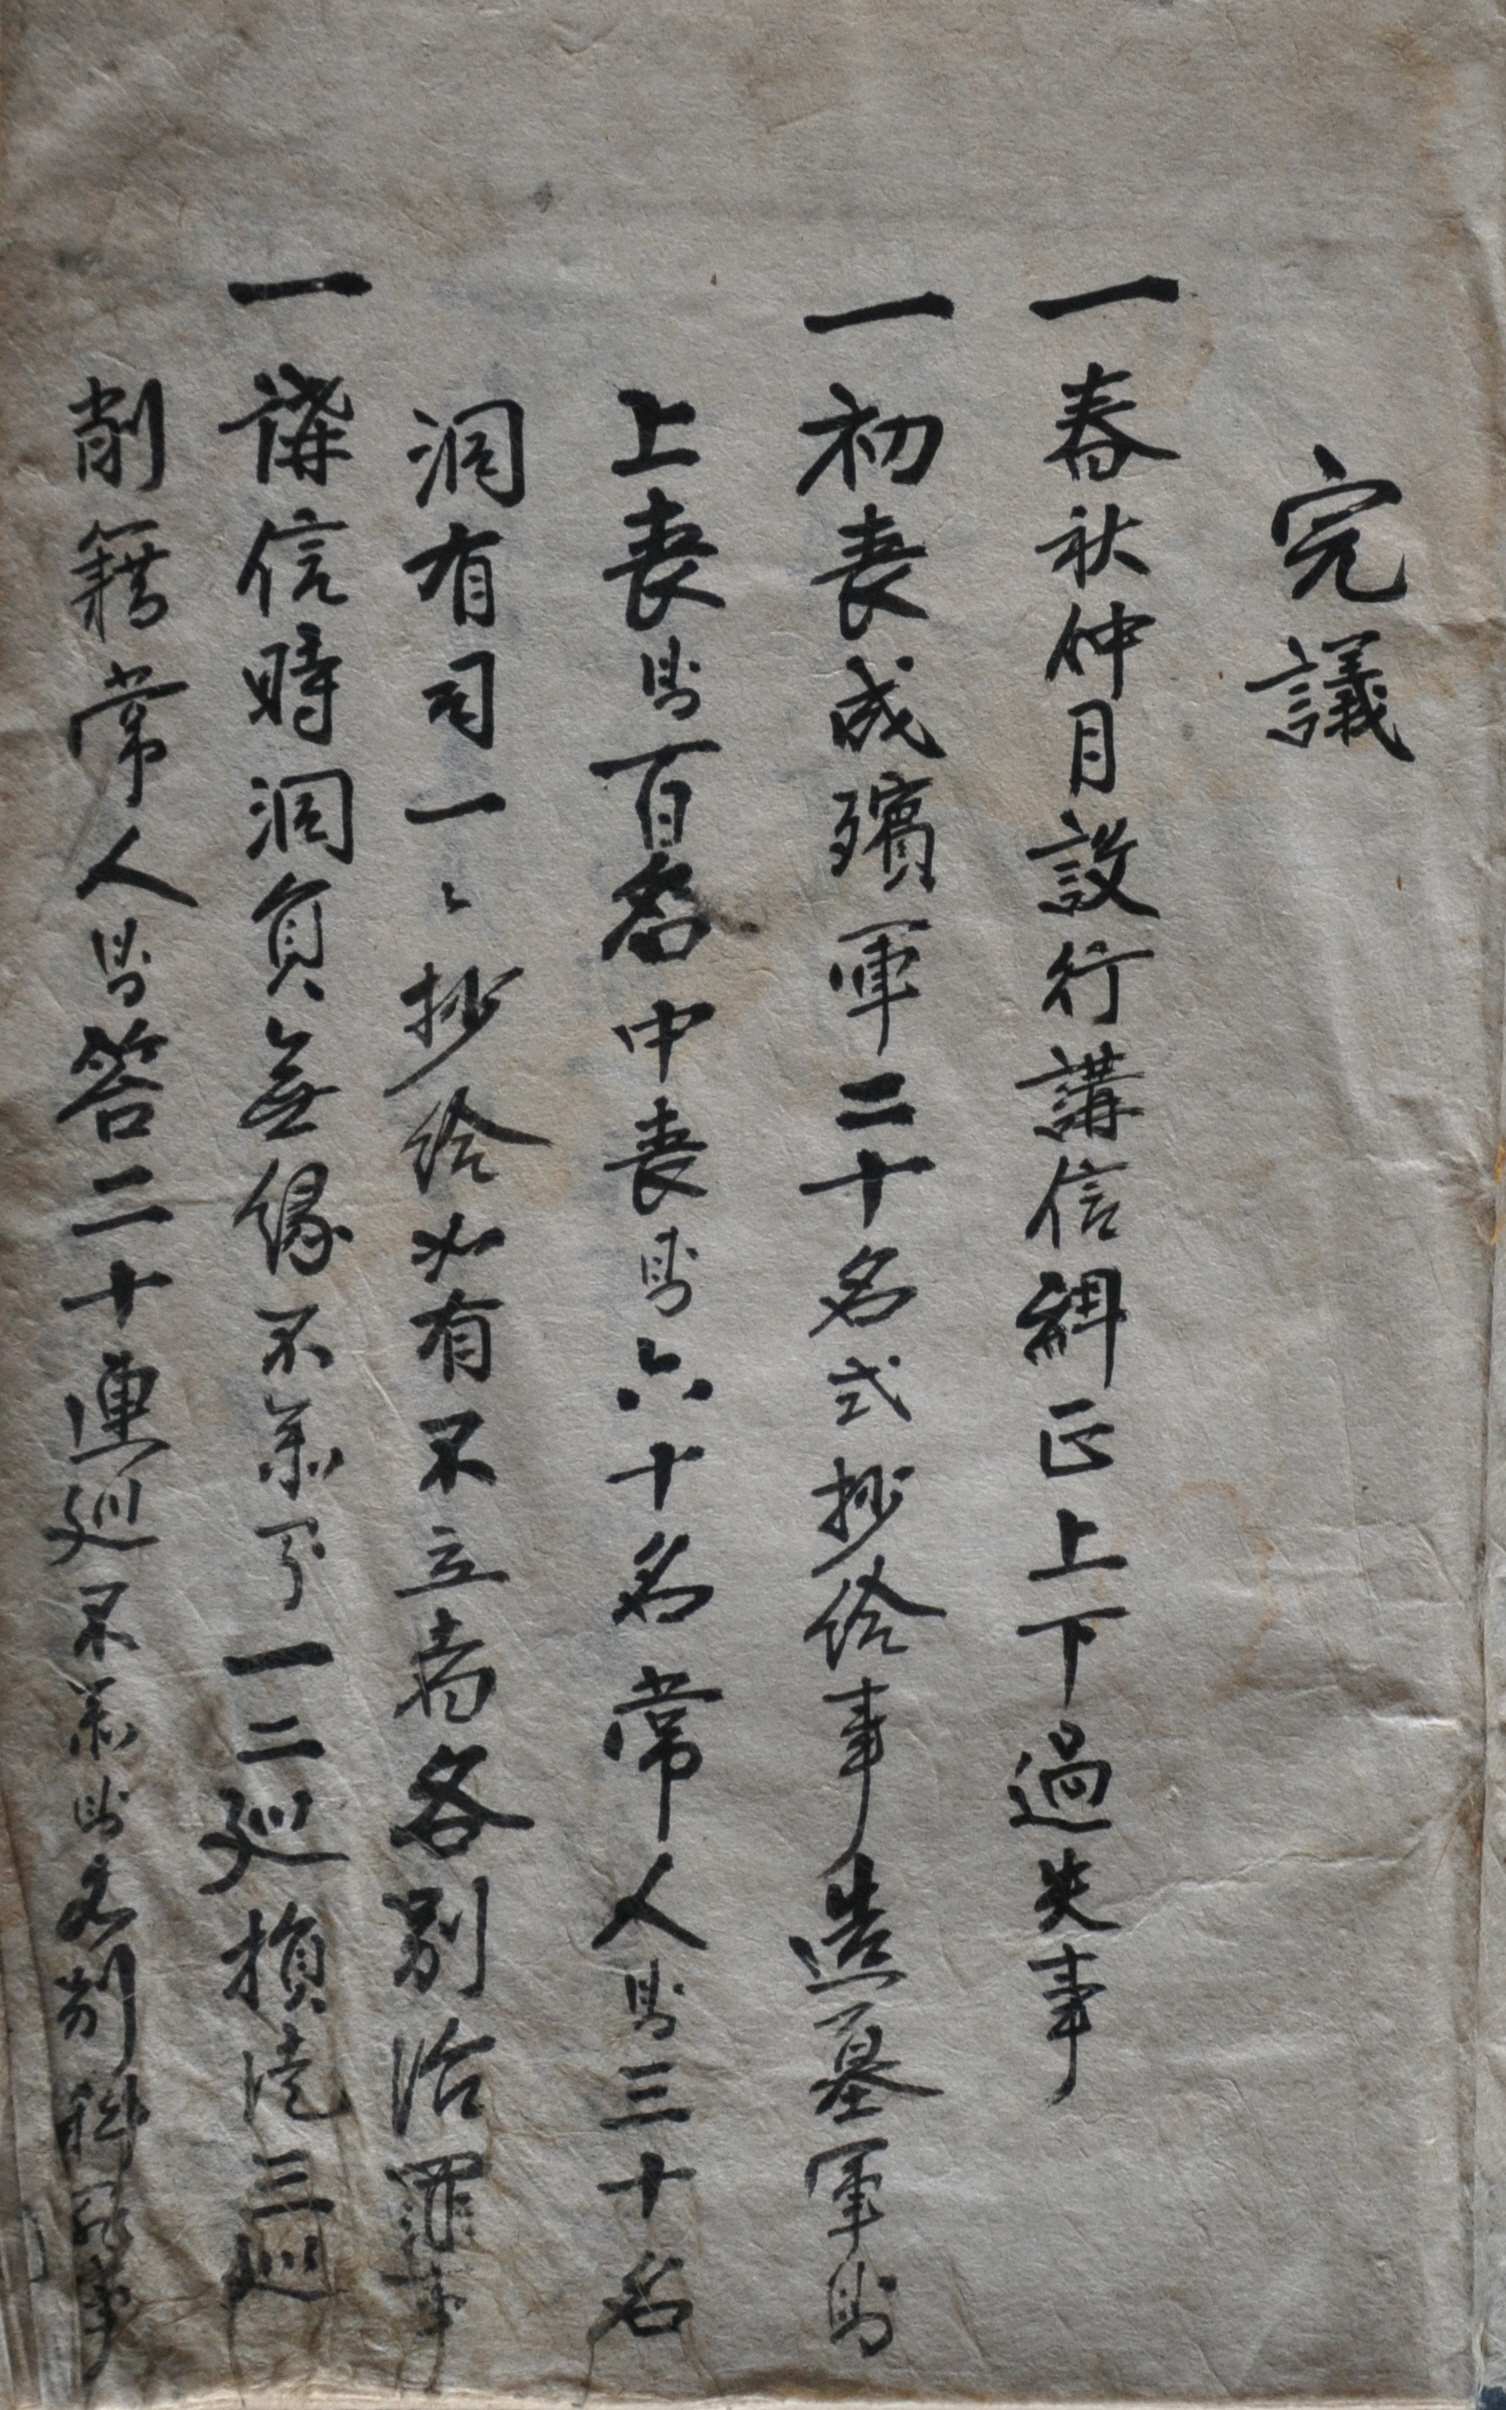 完議
一春秋仲月設行講信糾正上下過失事
一初喪成殯軍二十名式抄給事造墓軍段
上喪段百名中喪段六十名常人段三十名
洞有司一〻抄給如有不立者各別治罪事
一講信時洞員無緣不參則一二巡損徒三巡
削籍常人段笞二十連巡不參段各別科罪事